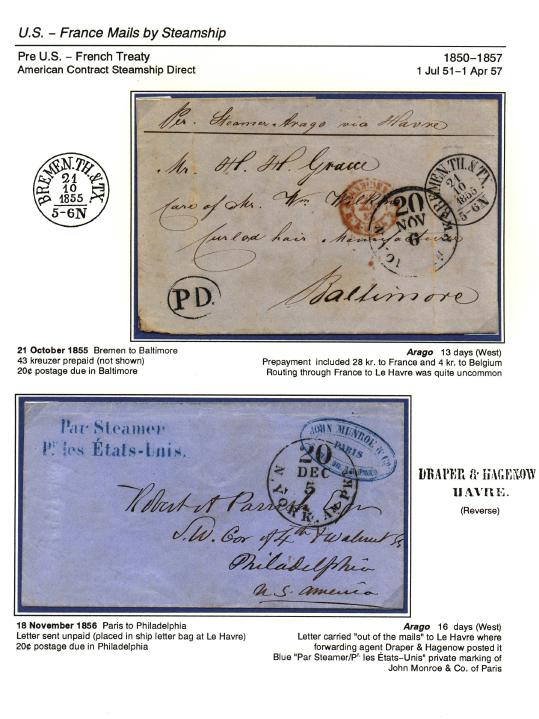 U.S. – France Mails by Steamship
Pre U.S. – French Treaty
American Contract Steamship Direct
1850–1857
1 Jul 51–1 Apr 57
BREMEN.TH.&TX.
21
10
1855
5-6N
Per. Steamer Arago via Havre
Mr. H. H. Grane
Care of Mr. Wm Wilkens
Curled hair Manufacturer
Baltimore
20
NOV
6
BREMEN.TH.&TX.
21
10
1855
5-6N
PD.
21 October 1855 Bremen to Baltimore
43 kreuzer prepaid (not shown)
20¢ postage due in Baltimore
Arago 13 days (West)
Prepayment included 28 kr. to France and 4 kr. to Belgium
Routing through France to Le Havre was quite uncommon
Par Steamer
Pr. les États-Unis.
JOHN MUNROE & Co
PARIS
20
DEC
5
N. YORK. AM. PKT
Robert A Parrish
S.W. Cor of 4th & Walnut St
Philadelphia
U.S. America
DRAPER & HAGENOW
HAVRE.
(Reverse)
18 November 1856 Paris to Philadelphia
Letter sent unpaid (placed in ship letter bag at Le Havre)
20¢ postage due in Philadelphia
Arago 16 days (West)
Letter carried "out of the mails" to Le Havre where
forwarding agent Draper & Hagenow posted it
Blue "Par Steamer/Pr les États–Unis" private marking of
John Monroe & Co. of Paris